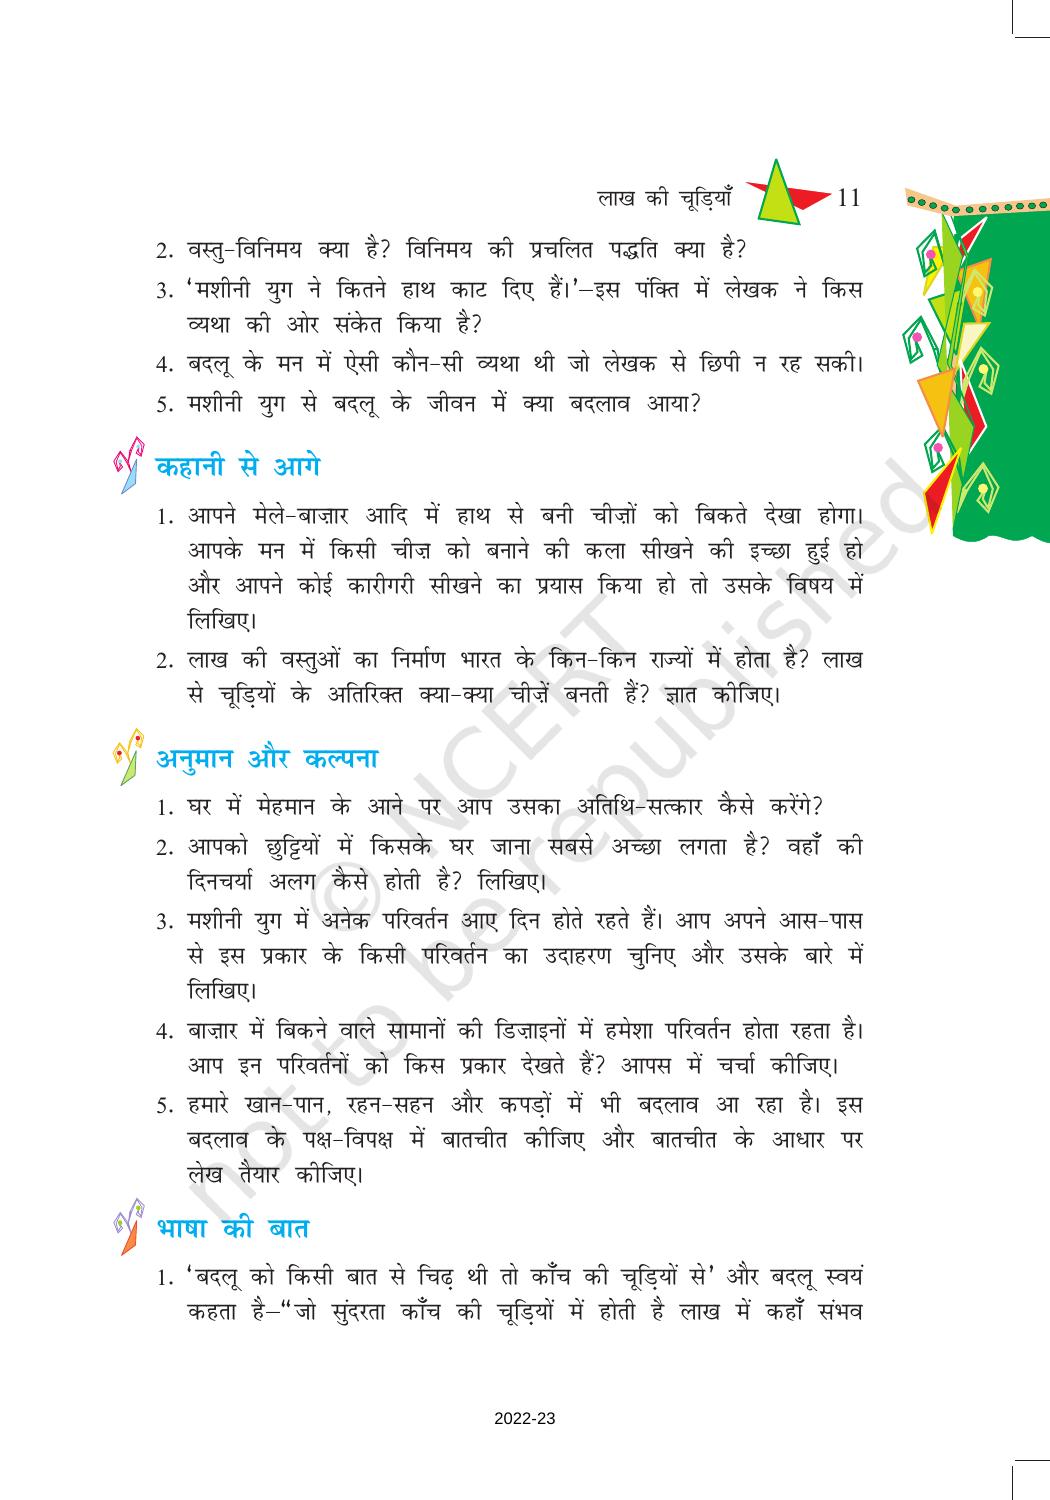 लाख की चूड़ियाँ 11
2. वस्तु-विनिमय क्या है? विनिमय की प्रचलित पद्धति क्या है?
3. ‘मशीनी युग ने कितने हाथ काट दिए हैं।’–इस पंक्ति में लेखक ने किस
व्यथा की ओर संकेत किया है?
4. बदलू के मन में ऐसी कौन-सी व्यथा थी जो लेखक से छिपी न रह सकी।
5. मशीनी युग से बदलू के जीवन में क्या बदलाव आया?
कहानी से आगे
1. आपने मेले-बाज़ार आदि में हाथ से बनी चीज़ों को बिकते देखा होगा।
आपके मन में किसी चीज़ को बनाने की कला सीखने की इच्छा हुई हो
और आपने कोई कारीगरी सीखने का प्रयास किया हो तो उसके विषय में
लिखिए।
2. लाख की वस्तुओं का निर्माण भारत के किन-किन राज्यों में होता है? लाख
से चूड़ियों के अतिरिक्त क्या-क्या चीज़ें बनती हैं? ज्ञात कीजिए।
अनुमान और कल्पना
1. घर में मेहमान के आने पर आप उसका अतिथि-सत्कार कैसे करेंगे?
2. आपको छुट्टियों में किसके घर जाना सबसे अच्छा लगता है? वहाँ की
दिनचर्या अलग कैसे होती है? लिखिए।
3. मशीनी युग में अनेक परिवर्तन आए दिन होते रहते हैं। आप अपने आस-पास
से इस प्रकार के किसी परिवर्तन का उदाहरण चुनिए और उसके बारे में
लिखिए।
4. बाज़ार में बिकने वाले सामानों की डिज़ाइनों में हमेशा परिवर्तन होता रहता है।
आप इन परिवर्तनों को किस प्रकार देखते हैं? आपस में चर्चा कीजिए।
5. हमारे खान-पान, रहन-सहन और कपड़ों में भी बदलाव आ रहा है। इस
बदलाव के पक्ष-विपक्ष में बातचीत कीजिए और बातचीत के आधार पर
लेख तैयार कीजिए।
भाषा की बात
1. ‘बदलू को किसी बात से चिढ़ थी तो काँच की चूड़ियों से’ और बदलू स्वयं
कहता है–“जो सुंदरता काँच की चूड़ियों में होती है लाख में कहाँ संभव
© NCERT
not to be republished
2022-23